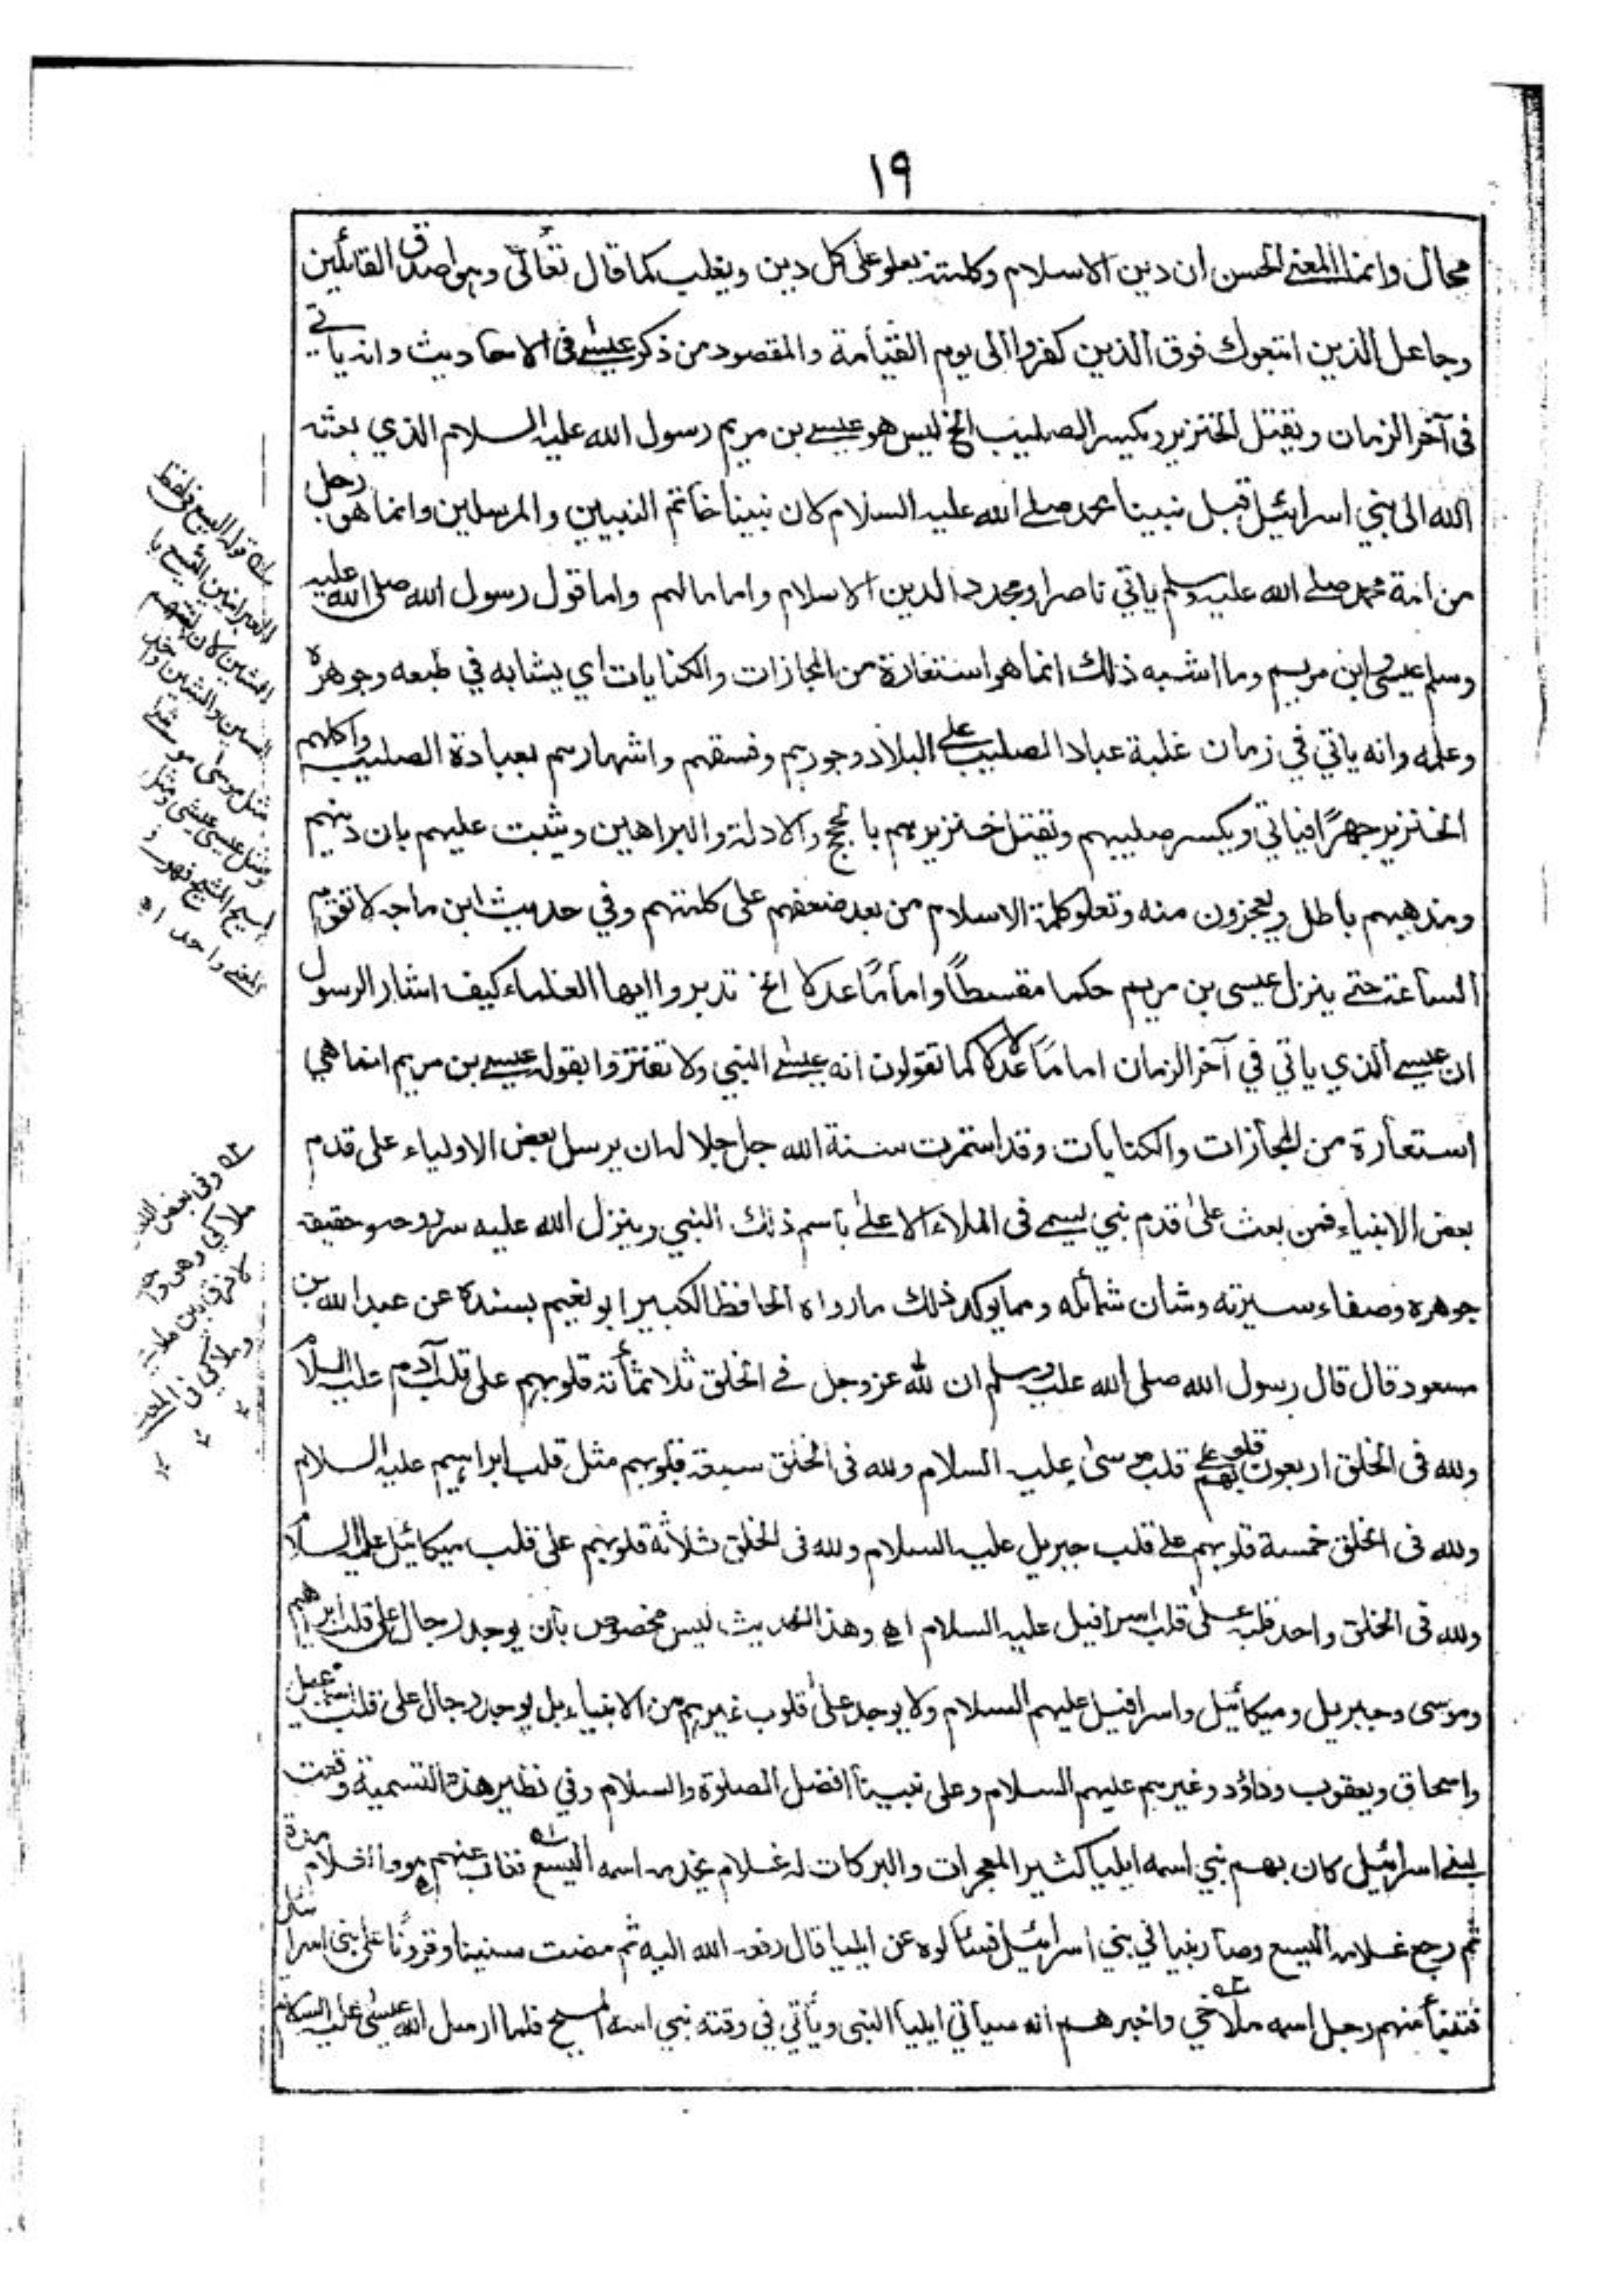 ١٩
محال وانما المعنى الحسن ان دين الاسلام وكلمته يعلو على كل دين ويغلب كما قال تعالى وهو اصدق القائلين
وجاعل الذين اتبعوك فوق الذين كفروا الى يوم القيامة والمقصود من ذكر عيسى فى الاحاديث وانه ياتي
فى آخر الزمان ويقتل الخنزير ويكسر الصليب الخ ليس هو عيسى بن مريم رسول الله عليه السلام الذي بعثه
الله الى بني اسرائيل قبل نبينا محمد صلى الله عليه السلام كان نبينا خاتم النبيين والمرسلين وانما هو رجل
من امة محمد صلى الله عليه وسلم ياتي ناصرا ومجددا لدين الاسلام واماما لهم واما قول رسول الله صلى الله عليه
وسلم عيسى ابن مريم وما اشبه ذلك انما هو استعارة من المجازات والكنايات اي يشابه في طبعه وجوهره
وعلمه وانه ياتي في زمان غلبة عباد الصليب على البلاد وجورهم وفسقهم واشهارهم بعبادة الصليب واكلهم
الخنزير جهرًا فياتي ويكسر صليبهم ويقتل خنزيرهم بالحجج والادلة والبراهين ويثبت عليهم بان دينهم
ومذهبهم باطل ويعجزون منه وتعلو كلمة الاسلام من بعد ضعفهم على كلمتهم وفي حديث ابن ماجه لا تقوم
الساعة حتى ينزل عيسى بن مريم حكما مقسطًا وامامًا عدلا الخ تدبروا ايها العلماء كيف اشار الرسول
ان عيسى الذي ياتي في آخر الزمان امامًا عدلا لا كما تقولون انه عيسى النبي ولا تغتروا بقوله عيسى بن مريم انما هي
استعارة من المجازات والكنايات وقد استمرت سنة الله جل جلاله ان يرسل بعض الاولياء على قدم
بعض الانبياء فمن بعث على قدم نبي يسمى فى الملاء الاعلى باسم ذلك النبي وينزل الله عليه سر روحه وحقيقة
جوهره وصفاء سيرته وشان شمائله ومما يوكد ذلك ما رواه الحافظ الكبير ابو نعيم بسنده عن عبد الله بن
مسعود قال قال رسول الله صلى الله عليه وسلم ان لله عز وجل في الخلق ثلاثمأئة قلوبهم على قلب آدم عليه السلام
ولله فى الخلق اربعون قلوبهم على قلب موسى عليه السلام ولله فى الخلق سبعة قلوبهم مثل قلب ابراهيم عليه السلام
ولله فى الخلق خمسة قلوبهم على قلب جبريل عليه السلام ولله فى الخلق ثلاثة قلوبهم على قلب ميكائيل عليه السلام
ولله فى الخلق واحد قلبه على قلب اسرافيل عليه السلام اه وهذا الحديث ليس مخصوص بأن يوجد رجال على قلب ابراهيم
وموسى وجبريل وميكائيل واسرافيل عليهم السلام ولا يوجد على قلوب غيرهم من الانبياء بل يوجد رجال على قلب اسمعيل
واسحاق ويعقوب وداؤد وغيرهم عليهم السلام وعلى نبينا افضل الصلوة والسلام وفي نظير هذه التسمية وقعت
لبنى اسرائيل كان بهم نبي اسمه ايليا كثير المعجزات والبركات له غلام يخدمه اسمه اليسع فغاب عنهم هو والغلام مدة
ثم رجع غلامه اليسع وصار نبيا في بني اسرائيل فسئالوه عن ايليا قال رفعه الله اليه ثم مضت سنينا وقرونًا على بنى اسرائيل
فتنبأ منهم رجل اسمه ملاخي واخبرهم انه سيأتي ايليا النبى ويأتي في وقته نبي اسمه المسيح فلما ارسل الله عيسى عليه السلام
له قوله اليسع فلفظ
العبرانيين اليشيع با
الشين كان لغتهم
السين والشين واحد
مثل موسى موشى
ومثل عيسى عيشى ومثل
المسيح المشيح فهو
بمعنى واحد اه
وفى بعض
ملاكي وهو واحد
لا فرق بين
وملاكي فى